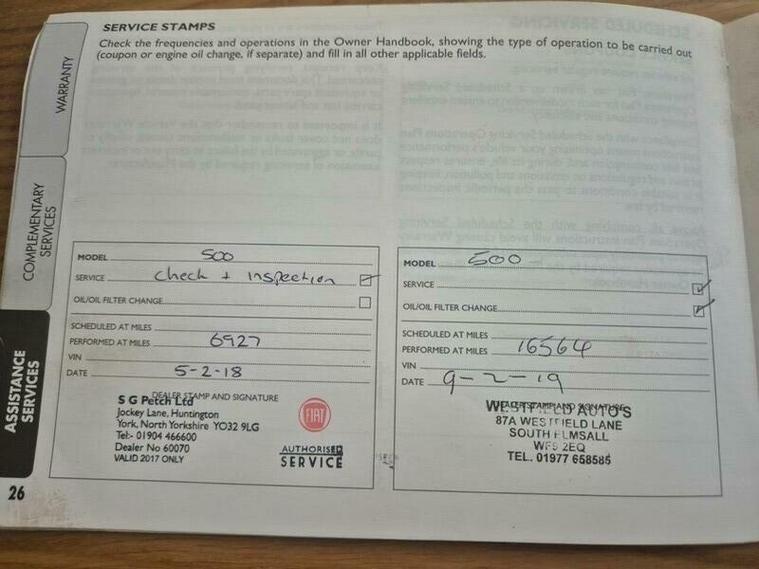 SERVICE STAMPS
Check the frequencies and operations in the Owner Handbook, showing the type of operation to be carried out
(coupon or engine oil change, if separate) and fill in all other applicable fields.
WARRANTY
COMPLEMENTARY
SERVICES
ASSISTANCE
SERVICES
MODEL 500
SERVICE Check + Inspection
OIL/OIL FILTER CHANGE
SCHEDULED AT MILES
PERFORMED AT MILES 6927
VIN
DATE 5-2-18
DEALER STAMP AND SIGNATURE
S G Petch Ltd
Jockey Lane, Huntington
York, North Yorkshire YO32 9LG
Tel:- 01904 466600
Dealer No 60070
VALID 2017 ONLY
FIAT
AUTHORISED
SERVICE
MODEL 500
SERVICE
OIL/OIL FILTER CHANGE
SCHEDULED AT MILES
PERFORMED AT MILES 16564
VIN
DATE 9-2-19
DEALER STAMP AND SIGNATURE
WESTFIELD AUTO'S
87A WESTFIELD LANE
SOUTH ELMSALL
WF9 2EQ
TEL. 01977 658585
26